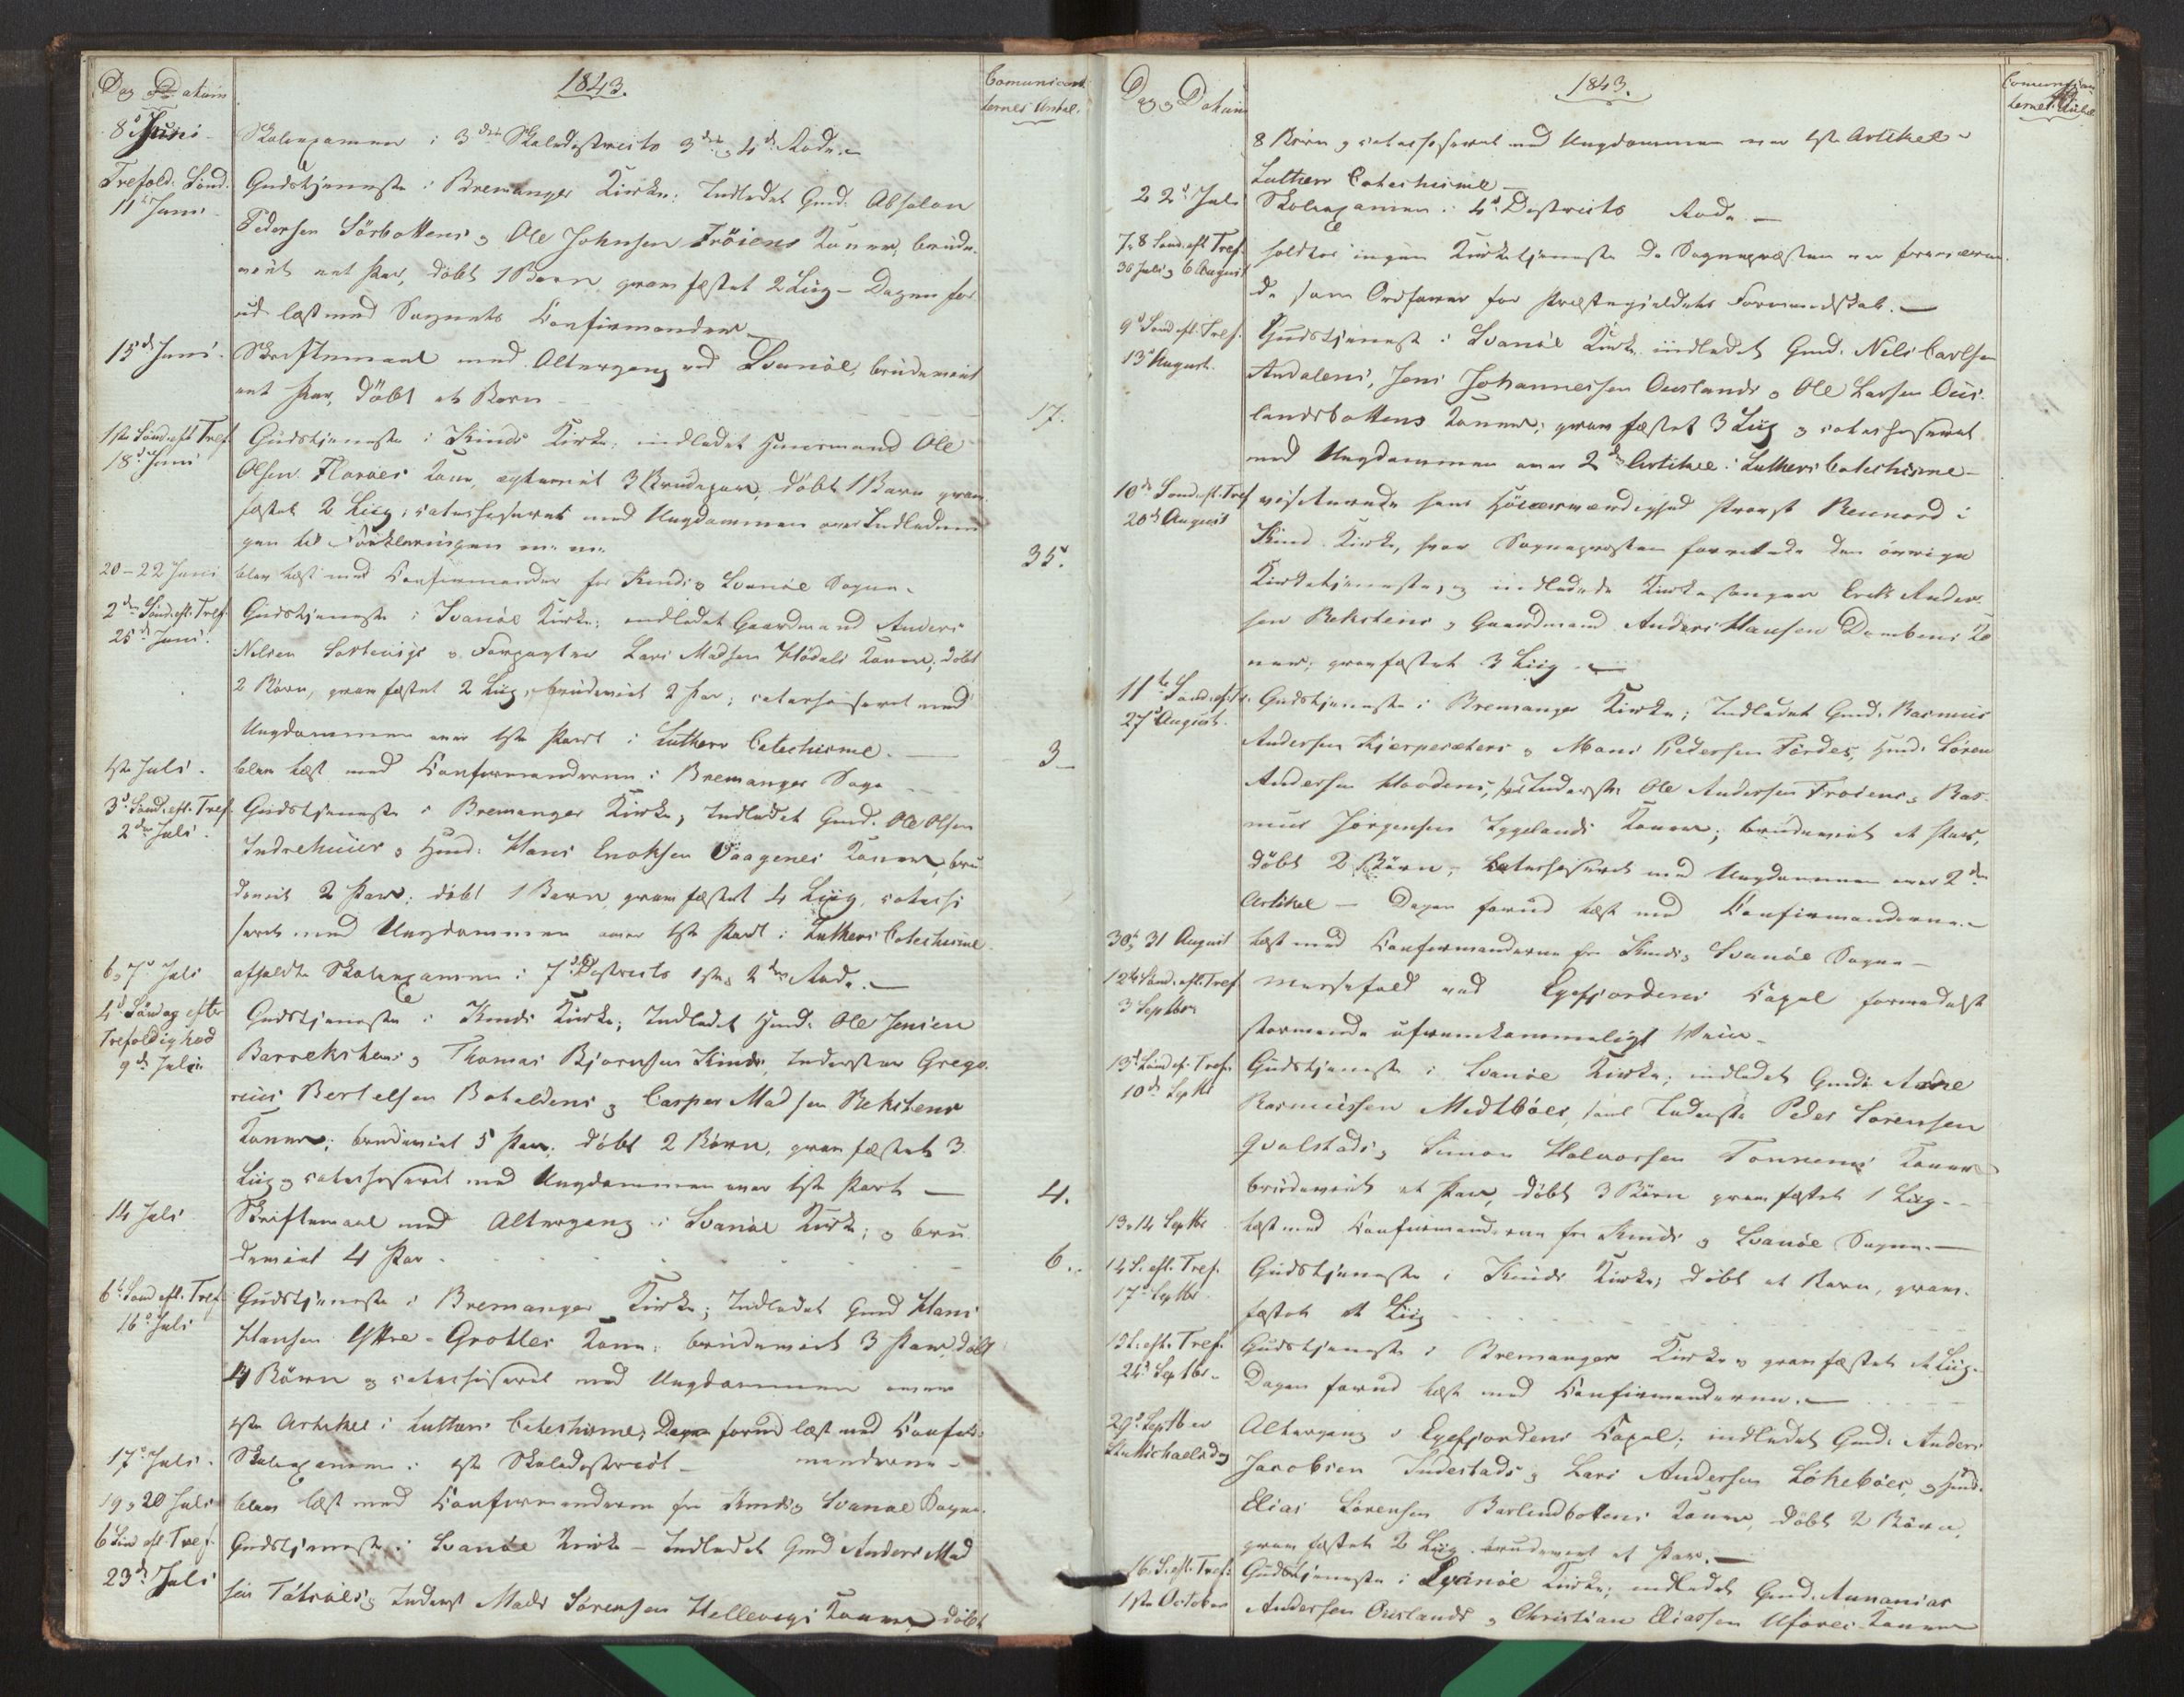 Dag og Datum
1843.
Comunicant
ternes Antal.
8de Juni
Skoleexamen i 3die Skoledistricts 3die og 4de Rode.
Trefold. Sønd.
11te Juni
Gudstjeneste i Bremanger Kirke; Indledet Gmd. Absalon
Pedersen Sørbottens og Ole Johnsen Frøiens Koner, brude-
viet eet Par, døbt 1 Barn, græsfæstet 2 Liig – Dagen for
ud læst med Sognets Confirmander
15de Juni.
Skriftemaal med Altergang ved Svanöe, brudeviet
eet Par, døbt et Barn
17.
1ste Sönd. eft. Tref.
18de Juni
Gudstjeneste i Kinds Kirke; indledet Huusmand Ole
Olsen Floröes Kone, egteviet 3 Brudepar, döbt 1 Barn græs
fæstet 2 Liig, catechiseret med Ungdommen over Indlednin
gen til Forklaringen m. m.
35.
20–22 Juni
blev læst med Confirmander for Kinds og Svanöe Sogne.
2den Sönd. eft. Tref.
25de Juni.
Gudstjeneste i Svanöe Kirke; indledet Gaardmand Anders
Nilsen og Forpagter Lars Madsen Hödals Koner, döbt
2 Börn, græsfæstet 2 Liig, brudeviet 2 Par; catechiseret med
Ungdommen over 1ste Part i Luthers Catechisme.
3
1ste Juli.
blev læst med Confirmanderne i Bremanger Sogn
3die Sönd. eft. Tref.
2den Juli.
Gudstjeneste i Bremanger Kirke, Indledet Gmd. Ole Olsen
Indrehuus og Hmd. Hans Enoksen Vaagenes Koner, bru
deviet 2 Par; döbt 1 Barn, græsfæstet 4 Liig, catechi
seret med Ungdommen over 1ste Part i Luthers Catechisme
6 og 7de Juli
afholdte Skoleexamen i 7de Districts 1ste og 2den Rode.
4de Söndag efter
Trefoldighed
9de Juli
Gudstjeneste i Kinds Kirke; Indledet Hmd. Ole Jensen
Barrekstens og Thomas Bjørnsen Kinds, Inderster Grego
rius Bertelsen Botoldens og Casper Madsen Rekstens
Koner; brudeviet 5 Par, döbt 2 Börn, græsfæstet 3
Liig og catechiseret med Ungdommen over 1ste Part
4.
14 Juli
Skriftemaal med Altergang i Svanöe Kirke; og bru
deviet 4 Par
6.
6te Sönd eft. Tref.
16de Juli
Gudstjeneste i Bremanger Kirke; Indledet Gmd Hans
Hansen Yttre-Grotles Kone, brudeviet 3 Par, döbt
4 Börn og catechiseret med Ungdommen over
1ste Artikel i Luthers Catechisme; Dagen forud læst med Confir
manderne
17de Juli.
Skoleexamen i 1ste Skoledistrict
19 og 20 Juli
blev læst med Confirmanderne fra Kinds og Svanöe Sogne.
6 Sön eft. Tref.
23de Juli
Gudstjeneste i Svanöe Kirke – Indledet Gmd Anders Mad
sen og Inderst Mads Sörensen Hellevigs Koner döbt
Dag og Datum
1843.
Comunican
ternes Antal
8 Börn og catechiseret med Ungdommen over 1ste Artikel
Luthers Catechisme
22de Juli
Skoleexamen i 4de Districts Rode.
7 og 8 Sönd. eft Tref.
30 Juli og 6 August
holdtes ingen Kirketjeneste da Sognepræsten var fraværen
de som Ordfører for Præstegjeldets Formandskab.
9de Sönd eft. Tref.
13de August.
Gudstjeneste i Svanöe Kirke indledet Gmd. Nils Carlsen
Andalens, Jens Johannessen Ouslands og Ole Larsen Ous
landsbottens Koner; græsfæstet 3 Liig og catechiseret
med Ungdommen over 2den Artikel i Luthers Catechisme
10de Sönd. eft. Tref
20de August
visiterede Hans Höiærværdighed Provst Rennord i
Kind Kirke, hvor Sognepræsten forrettede den övrige
Kirketjeneste, og indledede Kirkesanger Erik Ander
sen Rekstens og Gaardmand Anders Hansen Dombens Ko
ner; græsfæstet 3 Liig.
11te Sönd. eft. Tr.
27de August.
Gudstjeneste i Bremanger Kirke; Indledet Gmd. Rasmus
Andersen og Mons Pedersen Førdes, Hmd. Sören
Andersen Indersterne Ole Andersen Froiens og Ras
mus Jörgensen Koner; brudeviet et Par,
döbt 2 Börn, catechiseret med Ungdommen over 2den
Artikel – Dagen forud læst med Confirmanderne.
30te og 31 August
læst med Confirmanderne fra Kinds og Svanöe Sogne
12te Sönd. eft. Tref
3 Septbr.
Messefald ved Eyefjordens Capel formedelst
stormende ufremkommeligt Veir.
13de Sönd eft. Tref.
10de Septbr
Gudstjeneste i Svanöe Kirke; indledet Gmd. Arne
Rasmussen Medtböes, samt Inderste Peder Sorensen
Qvalstads og Simon Halvorsen Koner
brudeviet et Par, döbt 3 Börn græsfæstet 1 Liig.
13 og 14 Septbr
læst med Confirmanderne fra Kinds og Svanöe Sogne.
14 S. eft. Tref.
17de Septbr.
Gudstjeneste i Kinds Kirke; döbt et Barn, græs-
fæstet et Liig
15 S. eft. Tref.
24de Septbr.
Gudstjeneste i Bremanger Kirke og græsfæstet et Liig.
Dagen forud læst med Confirmanderne.
29de Septbr
Michaelsdag
Altergang i Eyefjordens Capel; indledet Gmd. Anders
Jacobsen Indestads og Lars Andersen Lökeböes, og Hmd.
Elias Sörensen Barlindbottens Koner, döbt 2 Börn,
græsfæstet 2 Liig, brudeviet et Par.
16. S. eft. Tref.
1ste October
Gudstjeneste i Svanöe Kirke; indledet Gmd. Annanias
Andersen Ouslands og Christian Eliassen Uföres Koner